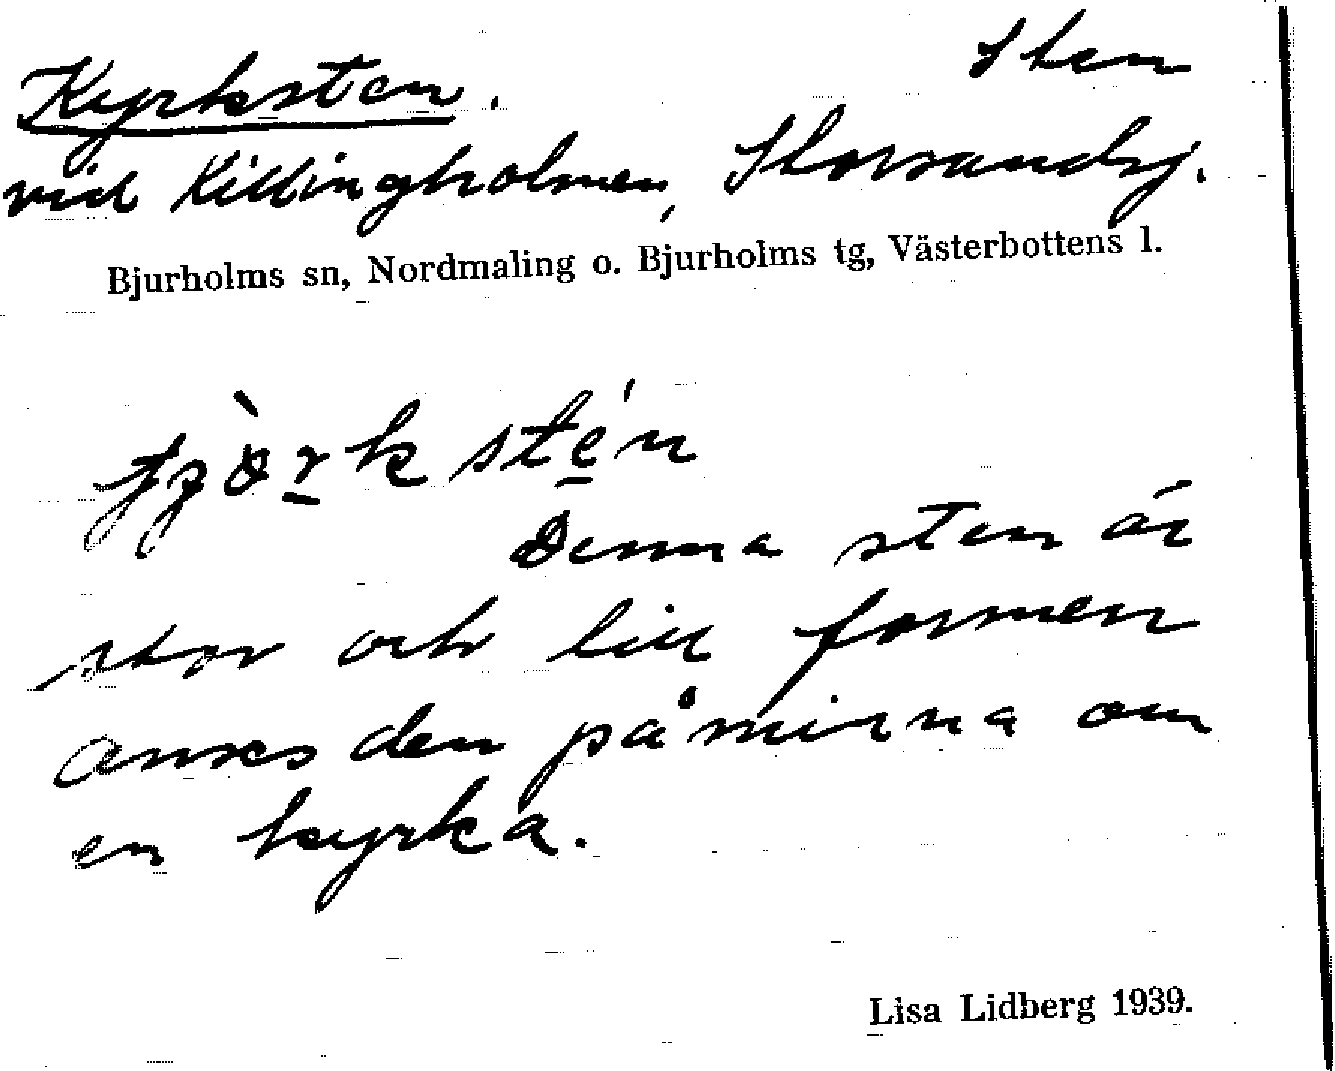 Kyrksten. Sten
vid Killingholmen, Storsandsj.
Bjurholms sn, Nordmaling o. Bjurholms tg, Västerbottens l.
Denna sten är
stor och till formen
anses den påminna om
en kyrka.
Lisa Lidberg 1939.